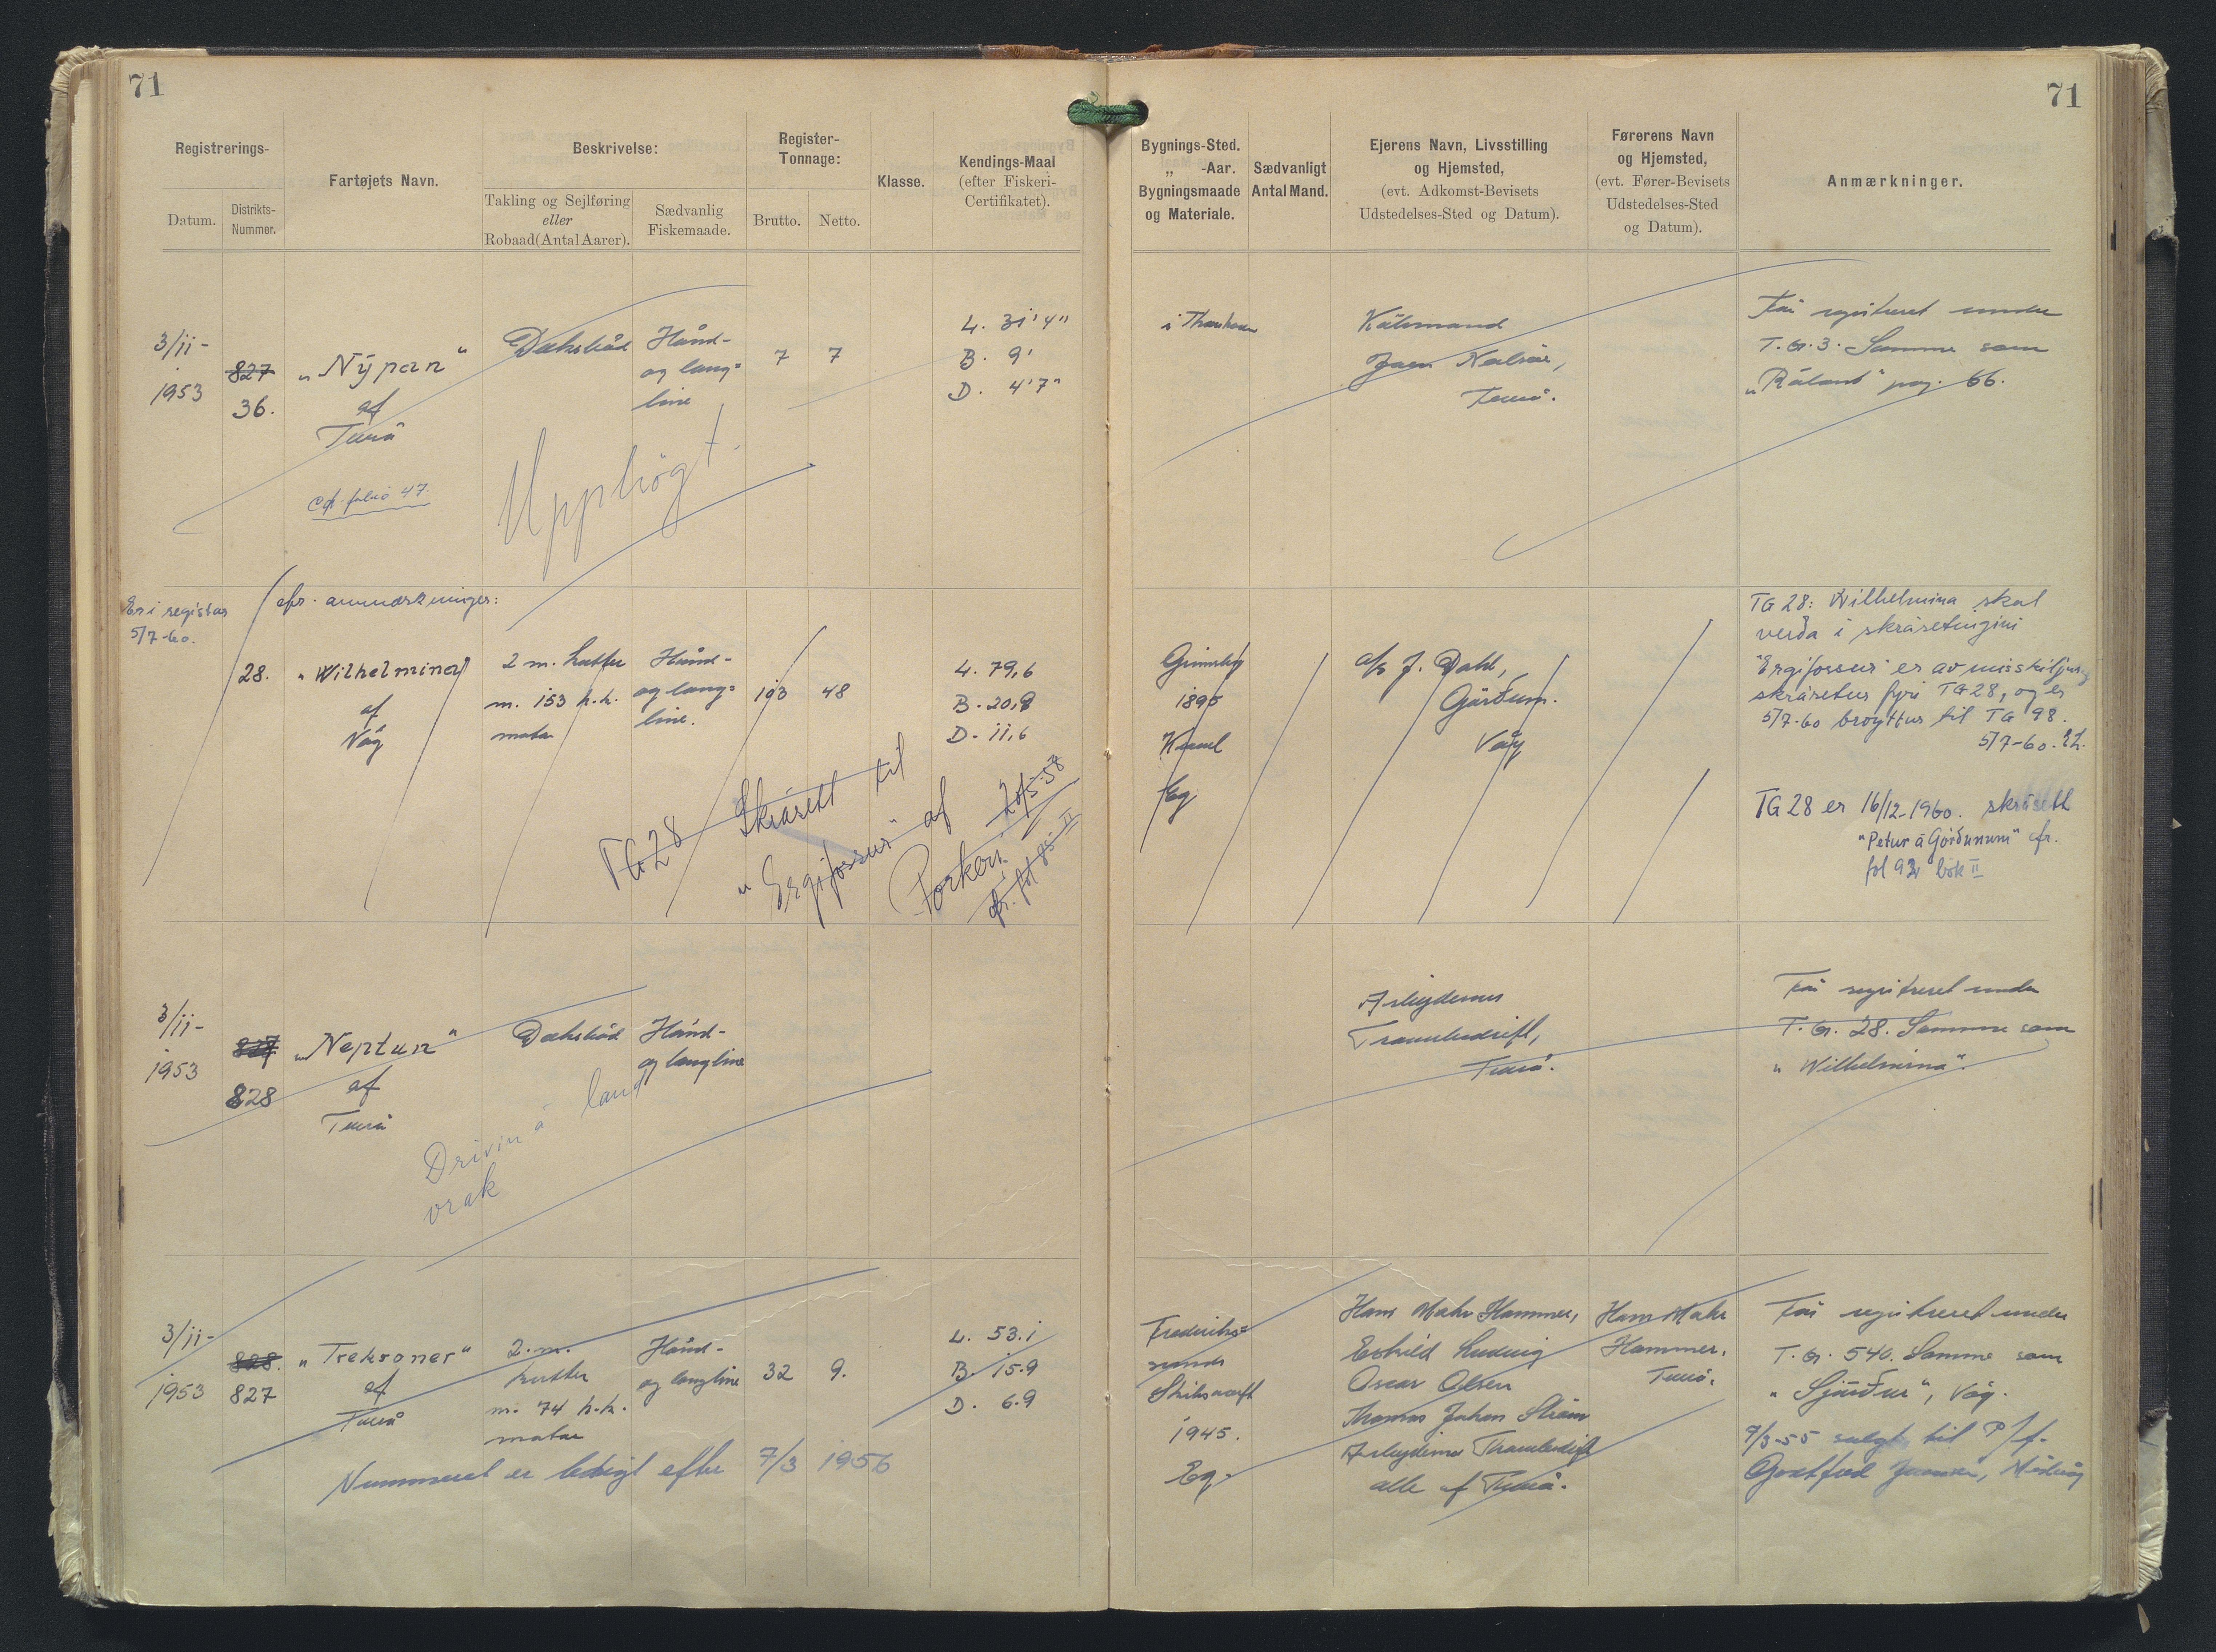 71
71
Registrerings-
Datum.
Distrikts-
Nummer.
Fartøjets Navn.
Beskrivelse:
Takling og Sejlføring
eller
Robaad (Antal Aarer).
Sædvanlig
Fiskemaade.
Register-
Tonnage:
Brutto.
Netto.
Klasse.
Kendings-Maal
(efter Fiskeri-
Certifikatet).
Bygnings-Sted.
„ -Aar.
Bygningsmaade
og Materiale.
Sædvanligt
Antal Mand.
Ejerens Navn, Livsstilling
og Hjemsted,
(evt. Adkomst-Bevisets
Udstedelses-Sted og Datum).
Førerens Navn
og Hjemsted,
(evt. Fører-Bevisets
Udstedelses-Sted
og Datum).
Anmærkninger.
3/11-
1953
827
36.
„Nýpan"
af
Tvurå
folio 47.
Dæksbåd
Hånd-
og lang=
line
7
7
L. 31'4"
B. 9'
D. 4'7"
Upphögt.
i Thorshavn
Købmand
Nolsøe,
Før registreret under
T.G. 3. Samme som
pag. 66.
Er i registur
5/7-60.
cfr. anmærkninger:
28.
„Wilhelmina"
af
Våg
2 m. kutter
m. 153 h.k.
motor
Hånd-
og lang=
line.
103
48
L. 79,6
B. 20,8
D. 11,6
TG 28 Skrásett til
„Ergifossur" af
Porkeri
20/5-58
cfr. fol 85 II
Grimsby
1895
Kravel
Eg
a/s J. Dahl,
Gørðum.
Våg
TG 28: Wilhelmina skal
verða i skrásetingini
"Ergifossur" er av misskiljing
skrásetur fyri TG 28, og er
5/7-60 broyttur til TG 98.
5/7-60.
TG 28 er 16/12-1960. skrásett
"Petur á Gørðunum" cfr.
fol 92 bók II
3/11-
1953
827
828
„Neptun"
af
Tvurå
Dæksbåd
Hånd-
og langline
Drivin á land
vrak
Arbejdernes
Trawlerdrift,
Før registreret under
T.G. 28. Samme som
„Wilhelmina".
3/11-
1953
828.
827
„Trekroner"
af
Tvurå
2. m.
kutter
m. 74 h.k.
motor
Hånd-
og langline
32
9.
L. 53.1
B. 15.9
D. 6.9
Nummeret er ledigt efter 7/3 1956
Frederiks=
sunds
Skibsværft
1945.
Eg.
Hans Hammer,
Eskild Ludvig
Oscar Olsen
Thomas Johan Strøm
Arbejdernes Trawlerdrift
alle af Tvurå.
Hans
Hammer,
Tvurå.
Før registreret under
T.G. 540. Samme som
„Sjúrður", Våg.
9/3-55 solgt til P/f.